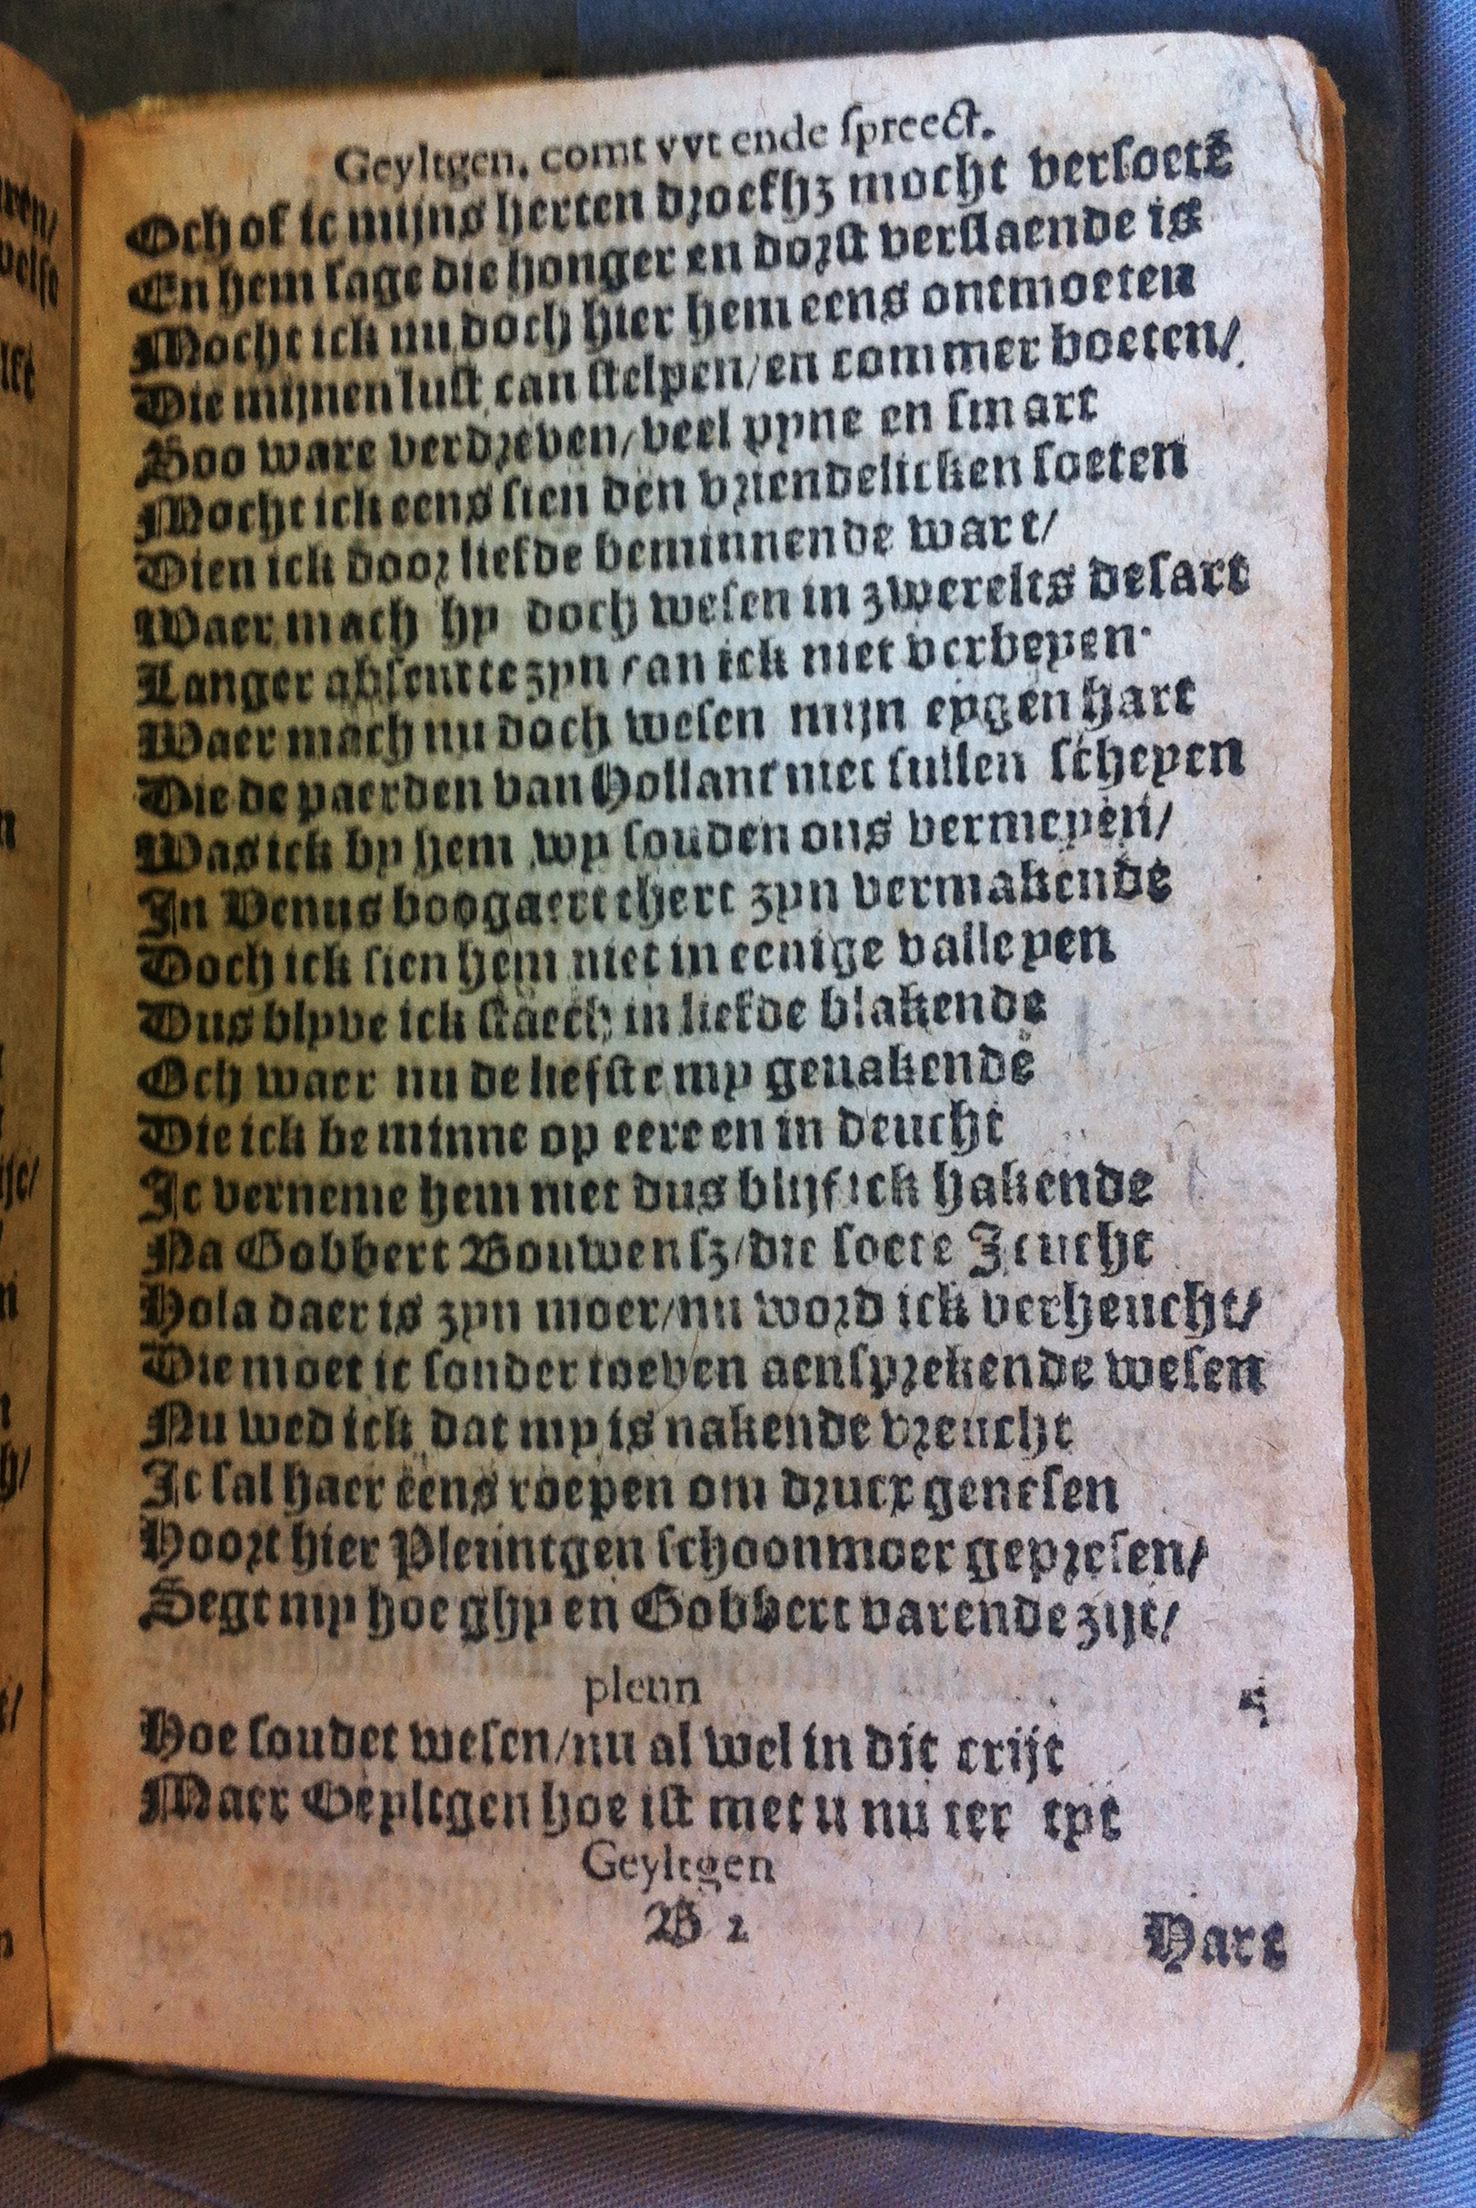 Geyltgen. comt vvt ende ſpreect.
Och of ic mijns herten droefhz mocht verſoetẽ
En hem ſage die honger en dorſt verſlaende is
Mocht ick nu doch hier hem eens ontmoeten
Die mijnen luſt can ſtelpen/en commer boeten/
Soo ware verdreven/veel pyne en ſmart
Mocht ick eens ſien den vriendelicken ſoeten
Dien ick door liefde beminnende wart/
Waer mach hy doch weſen in zwerelts deſart
Langer abſent te zyn can ick niet verbeyen
Waer mach nu doch weſen mijn eygen hart
Die de paerden van Hollant niet ſullen ſcheyen
Was ick by hem wy ſouden ons vermeyen/
In Venus boogaert thert zyn vermakende
Doch ick ſien hem niet in eenige valleyen
Dus blyve ick ſtaech in liefde blakende
Och waer nu de liefſte my genakende
Die ick beminne op eere en in deucht
Ic verneme hem niet dus blijf ick hakende
Na Gobbert Bouwenſz/die ſoete Jeucht
Hola daer is zyn moer/nu word ick verheucht/
Die moet ic ſonder toeven aenſprekende weſen
Nu wed ick dat my is nakende vreucht
Ic ſal haer eens roepen om drucx geneſen
Hoort hier Pleuntgen ſchoonmoer gepreſen/
Segt my hoe ghy en Gobbert varende zijt/
pleun
Hoe ſoudet weſen/nu al wel in dit crijt
Maer Geyltgen hoe iſt met u nu ter tyt
Geyltgen
B 2
Hart